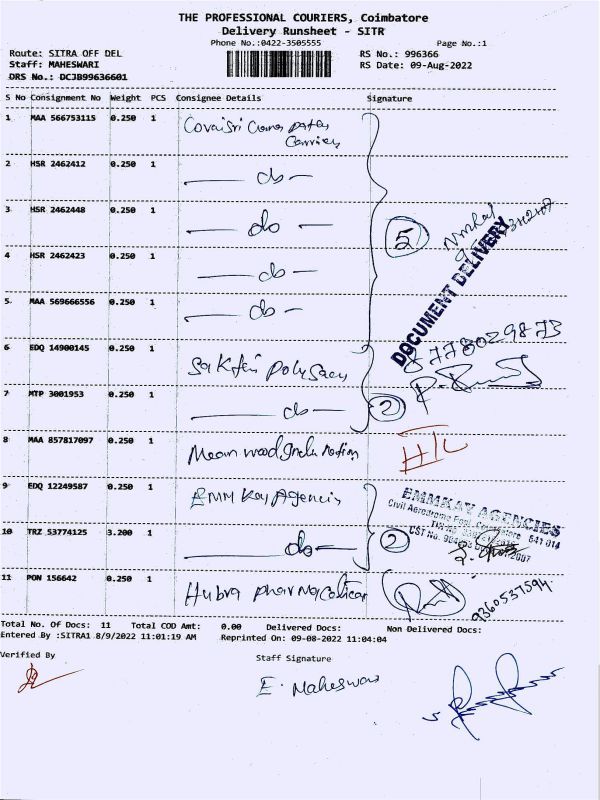 THE PROFESSIONAL COURIERS, Coimbatore
Delivery Runsheet - SITR
Phone No.:0422-3505555
Page No.:1
Route: SITRA OFF DEL
RS No.: 996366
Staff: MAHESWARI
RS Date: 09-Aug-2022
DRS No.: DCJB99636601
S No Consignment No Weight PCS Consignee Details Signature
1 MAA 566753115 0.250 1
2 HSR 2462412 0.250 1 do
3 HSR 2462448 0.250 1 do
5
4 HSR 2462423 0.250 1 do
DOCUMENT DELIVERY
5 MAA 569666556 0.250 1 do
8778029873
6 EDQ 14900145 0.250 1 Sakthi
7 MTP 3001953 0.250 1 do 2
8 MAA 857817097 0.250 1
9 EDQ 12249587 0.250 1 EMM Kay Agencis
EMMKAY AGENCIES
Civil Aerodrome Post, Coimbatore 641 014
10 TRZ 53774125 3.200 1 do 2
CST No.
11 PON 156642 0.250 1 Hubra
9360537594
Total No. Of Docs: 11 Total COD Amt: 0.00 Delivered Docs: Non Delivered Docs:
Entered By :SITRA1 8/9/2022 11:01:19 AM Reprinted On: 09-08-2022 11:04:04
Verified By
Staff Signature
E. Maheswari